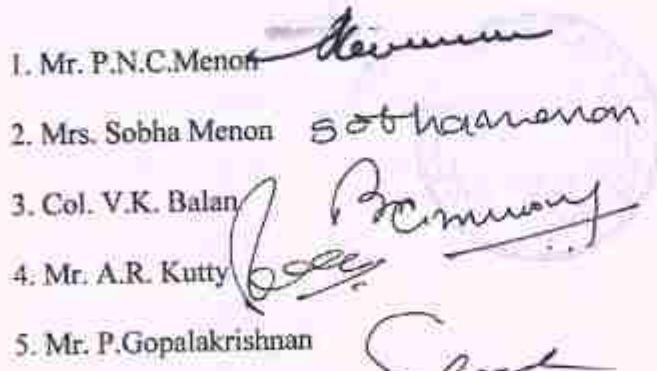 1. Mr. P.N.C.Menon
2. Mrs. Sobha Menon sobhamenon
3. Col. V.K. Balan
4. Mr. A.R. Kutty
5. Mr. P.Gopalakrishnan